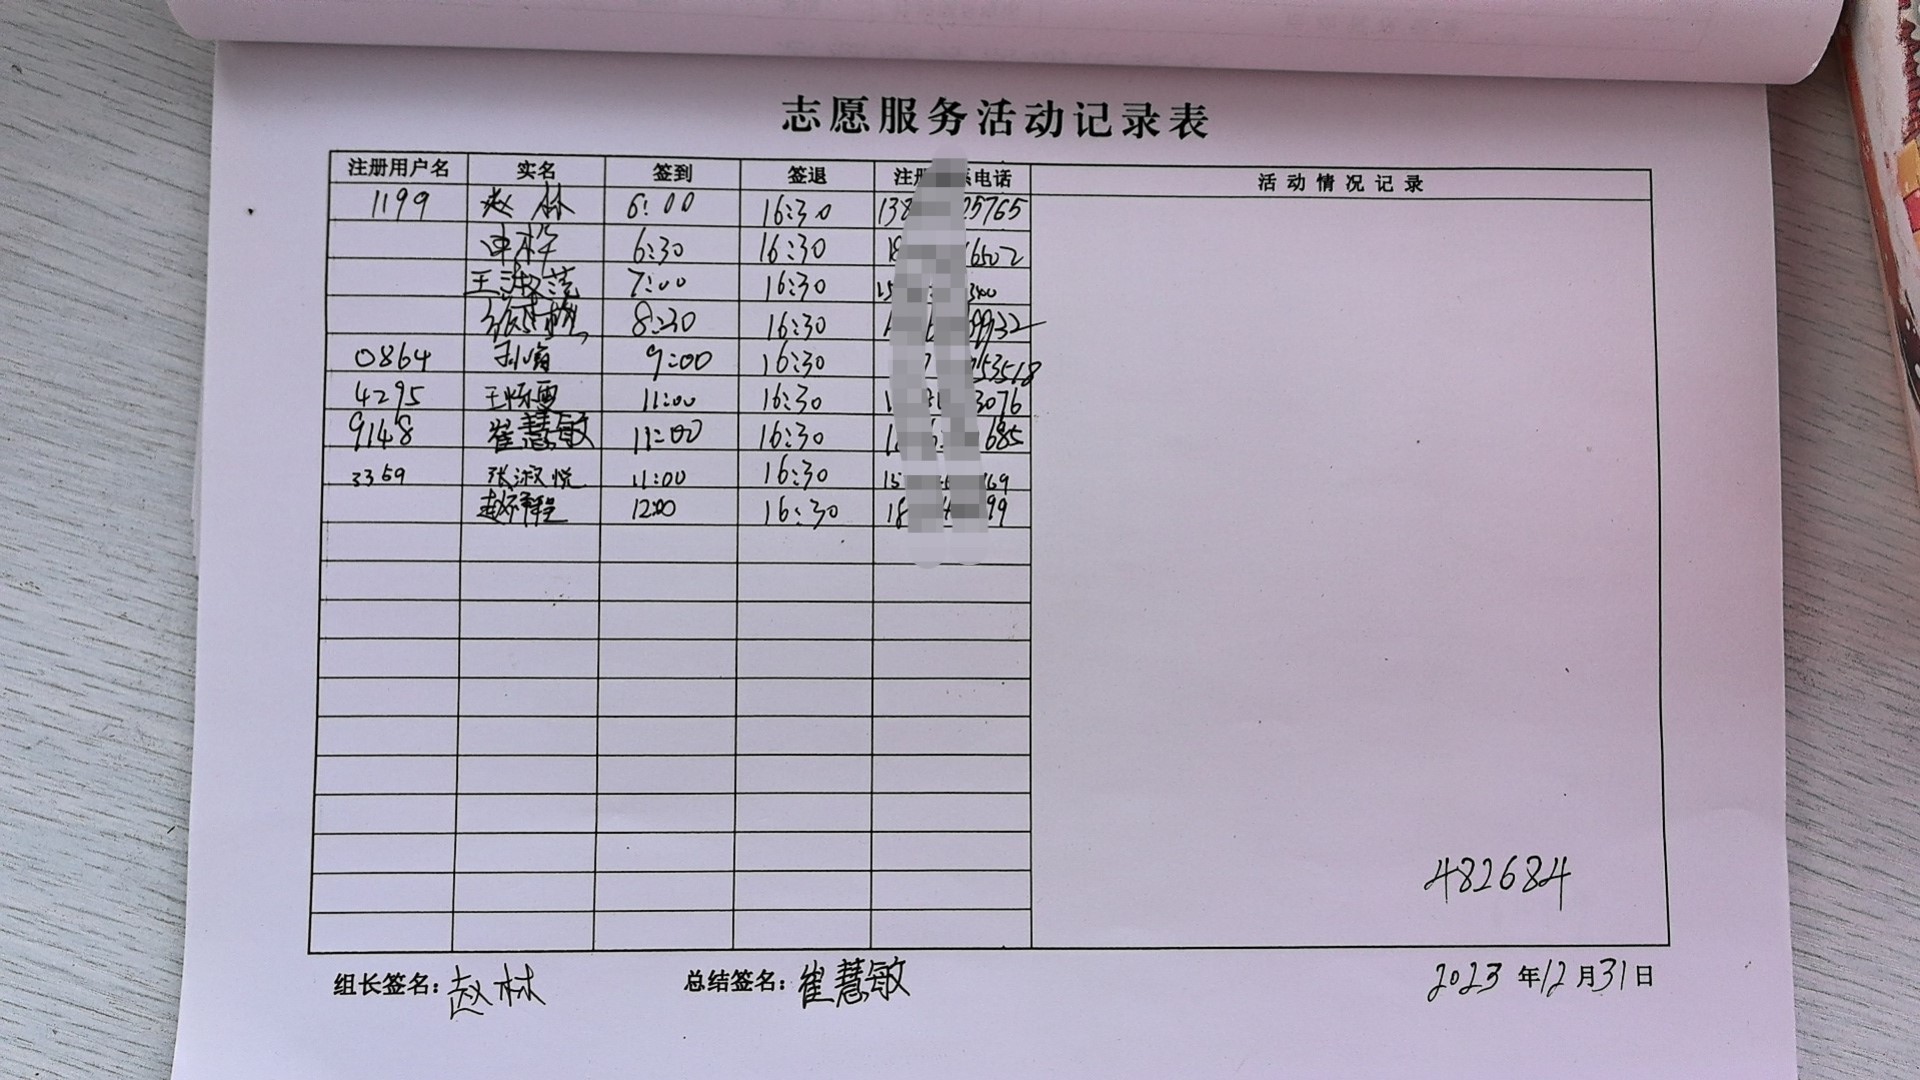 志愿服务活动记录表
注册用户名 实名 签到 签退 注册 电话 活动情况记录
1199 赵林 6:00 16:30 138 25765
6:30 16:30 18 6502
王淑范 7:00 16:30 15 300
8:30 16:30 9932
0864 9:00 16:30 53518
4295 王怀雪 11:00 16:30 1 3076
9148 崔慧敏 11:00 16:30 1 685
3359 张淑悦 11:00 16:30 15 69
12:00 16:30 18 99
482684
组长签名:赵林 总结签名:崔慧敏 2023年12月31日